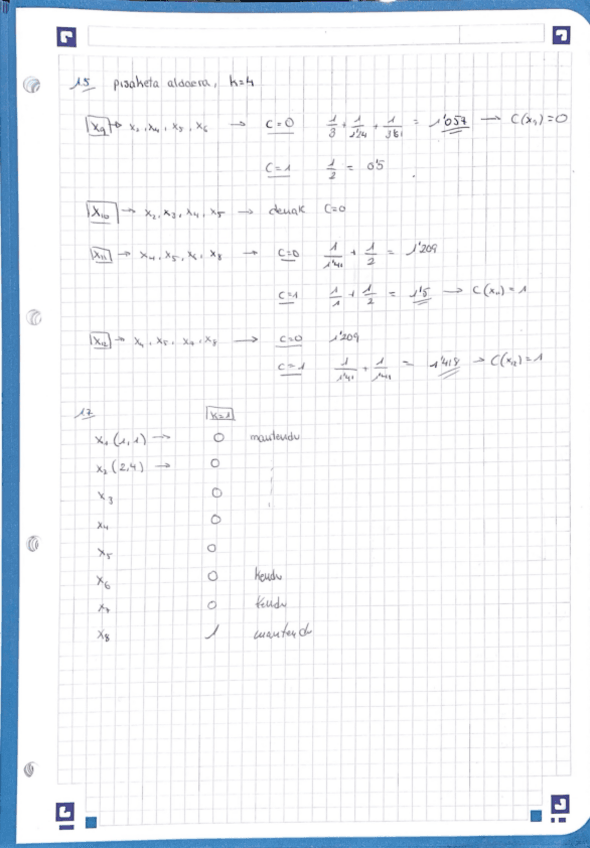 15 pisaketa aldaera, k=4
x₉ → x₂, x₄, x₅, x₆ → C=0 1/3 + 1/2'24 + 1/3'61 = 1'057 → C(x₉)=0
C=1 1/2 = 0'5
x₁₀ → x₂, x₃, x₄, x₅ → denak C=0
x₁₁ → x₄, x₅, x₆, x₈ → C=0 1/1'41 + 1/2 = 1'209
C=1 1/1 + 1/2 = 1'5 → C(x₁₁)=1
x₁₂ → x₄, x₅, x₇, x₈ → C=0 1'209
C=1 1/1'41 + 1/1'41 = 1'418 → C(x₁₂)=1
17 k=1
x₁ (1,1) → 0 mantendu
x₂ (2,4) → 0
x₃ 0
x₄ 0
x₅ 0
x₆ 0 kendu
x₇ 0 kendu
x₈ 1 mantendu